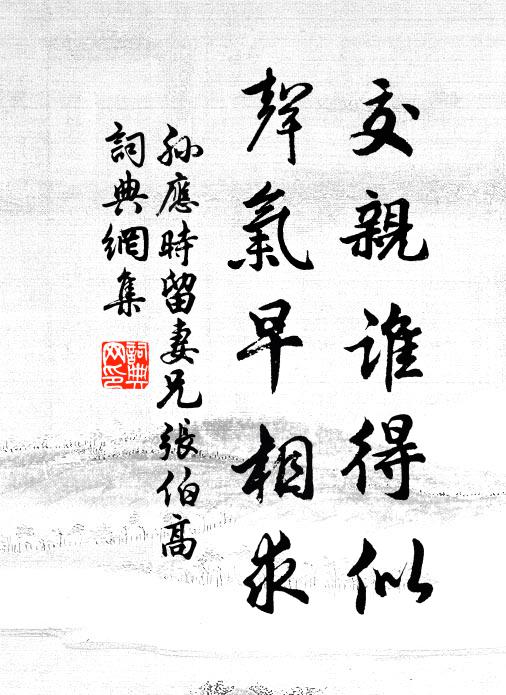 交親誰得似
聲氣早相求
孫應時留妻兄張伯高
詞典網集
詞典
网印